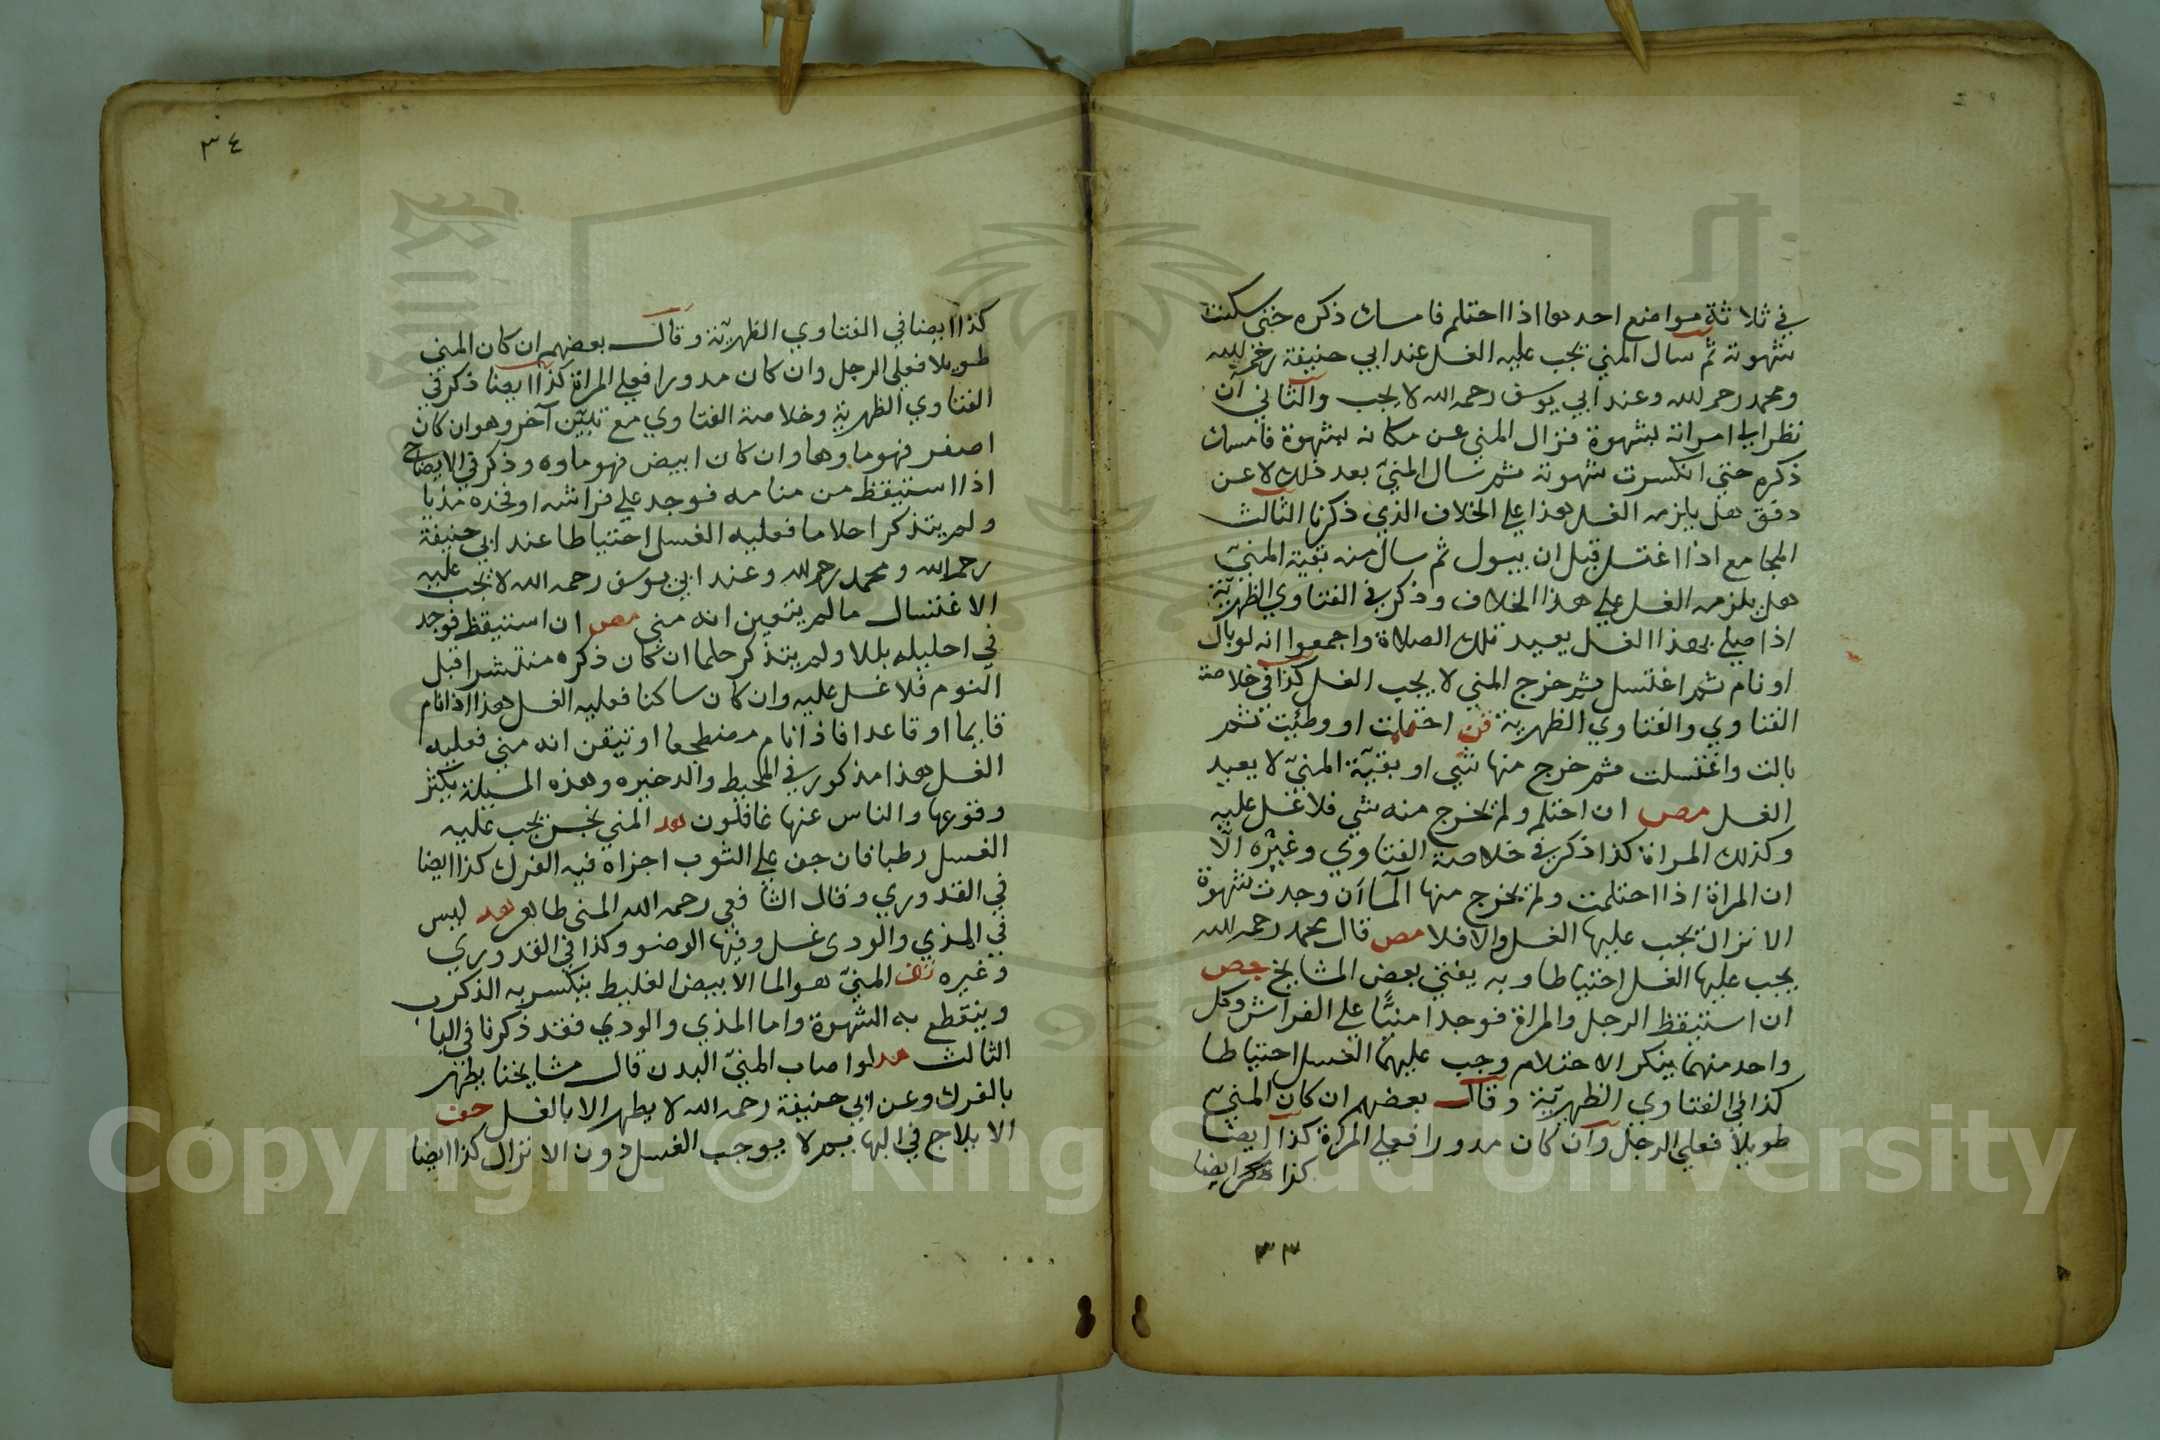 في ثلاثة مواضع احدها اذا احتلم فامسك ذكره حتى سكنت
شهوته ثم سال المني يجب عليه الغسل عند ابي حنيفة رحمه الله
ومحمد رحمه الله وعند ابي يوسف رحمه الله لا يجب والثاني ان
نظر الى امراته بشهوة فنزال المني عن مكانه بشهوة فامسك
ذكره حتى انكسرت شهوته ثم سال المني بعد ذلك لا عن
دفق هل يلزمه الغسل هذا على الخلاف الذي ذكرنا الثالث
المجامع اذا اغتسل قبل ان يبول ثم سال منه بقية المني
هل يلزمه الغسل على هذا الخلاف وذكر في الفتاوي الظهرية
اذا صلى بهذا الغسل يعيد تلك الصلاة واجمعوا انه لو بال
او نام ثم اغتسل ثم خرج المني لا يجب الغسل كذا في خلاصة
الفتاوي والفتاوي الظهرية فن احتلمت او وطئت ثم
بالت واغتسلت ثم خرج منها شي او بقية المني لا يعيد
الغسل مص ان احتلم ولم يخرج منه شي فلا غسل عليه
وكذلك المراة كذا ذكر في خلاصة الفتاوي وغيره الا
ان المراة اذا احتلمت ولم يخرج منها الما ان وجدت شهوة
الانزال يجب عليها الغسل والا فلا مص قال محمد رحمه الله
يجب عليها الغسل احتياطا وبه يفتي بعض المشايخ حص
ان استيقظ الرجل والمراة فوجدا منيا على الفراش وكل
واحد منهما ينكر الاحتلام وجب عليهما الغسل احتياطا
كذا في الفتاوي الظهرية وقال بعضهم ان كان المني
طويلا فعلى الرجل وان كان مدورا فعلى المراة كذا ايضا
كذا ايضا
٣٣
٣٤
كذا ايضا في الفتاوي الظهرية وقال بعضهم ان كان المني
طويلا فعلى الرجل وان كان مدورا فعلى المراة كذا ايضا ذكر في
الفتاوي الظهرية وخلاصة الفتاوي مع تبيين آخر وهو ان كان
اصفر فهو ماوها وان كان ابيض فهو ماوه وذكر في الايضاح
اذا استيقظ من منامه فوجد على فراشه او فخده مذيا
ولم يتذكر احلاما فعليه الغسل احتياطا عند ابي حنيفة
رحمه الله ومحمد رحمه الله وعند ابي يوسف رحمه الله لا يجب عليه
الاغتسال ما لم يتعين انه مني مص ان استيقظ فوجد
في احليله بللا ولم يتذكر حلما ان كان ذكره منتشرا قبل
النوم فلا غسل عليه وان كان ساكنا فعليه الغسل هذا اذا نام
قايما او قاعدا فاذا نام مضطجعا او تيقن انه مني فعليه
الغسل هذا مذكور في المحيط والدخيره وهذه المسيلة يكثر
وقوعها والناس عنها غافلون هد المني نجس يجب عليه
الغسل رطبا فان جف على الثوب اجزاه فيه الفرك كذا ايضا
في القدوري وقال الشافعي رحمه الله المني طاهر هد ليس
في المذي والودى غسل وفيها الوضو وكذا في القدوري
وغيره تف المني هو الما الابيض الغليظ ينكسر به الذكر
وينقطع به الشهوة واما المذي والودي فقد ذكرنا في البا
الثالث هد لو اصاب المني البدن قال مشايخنا يطهر
بالفرك وعن ابي حنيفة رحمه الله لا يطهر الا بالغسل حف
الايلاج في البهايم لا يوجب الغسل دون الانزال كذا ايضا
Copyright © King Saud University